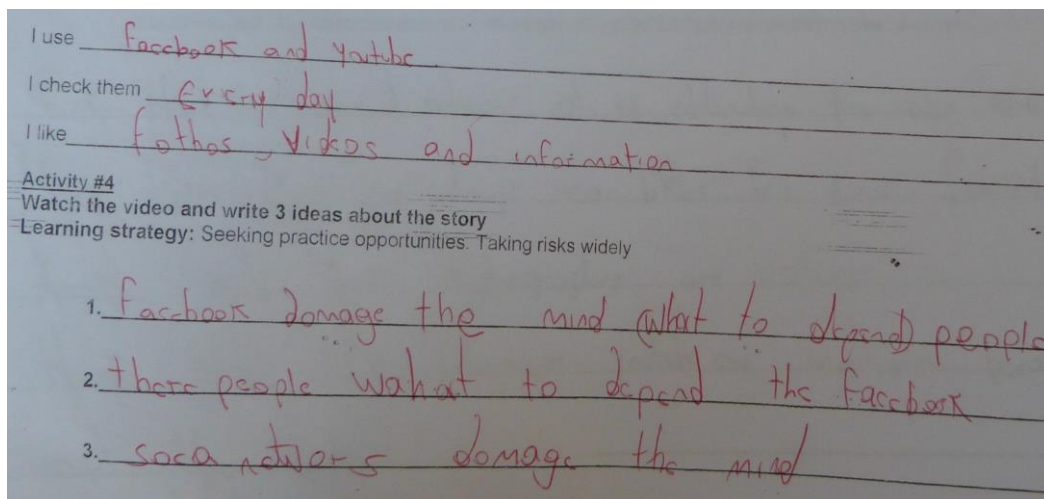 I use facebook and youtube
I check them Every day
I like fothos, Videos and information
Activity #4
Watch the video and write 3 ideas about the story
Learning strategy: Seeking practice opportunities. Taking risks widely
1. facebook domage the mind (what to depend) people
2. there people wahat to depend the facebook
3. soca networs domage the mind